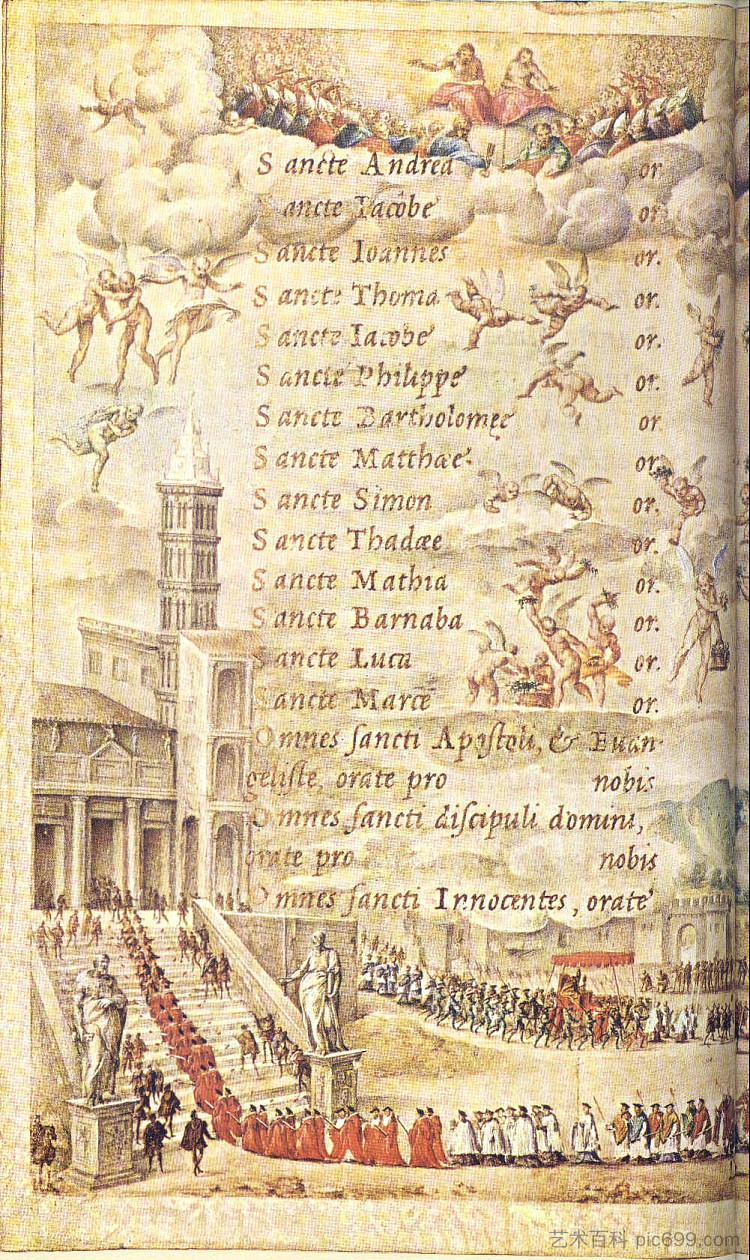 Sancte Andrea or
Sancte Iacobe or
Sancte Ioannes or.
Sancte Thoma or.
Sancte Iacobe or.
Sancte Philippe or.
Sancte Bartholomęe or
Sancte Matthæe. or.
Sancte Simon or.
Sancte Thadæe or.
Sancte Mathia or.
Sancte Barnaba or.
Sancte Luca or.
Sancte Marce or.
Omnes ſancti Apoſtoli, & Euan-
geliſte, orate pro nobis
Omnes ſancti diſcipuli domini,
orate pro nobis
Omnes ſancti Innocentes, orate
艺术百科 pic699.com